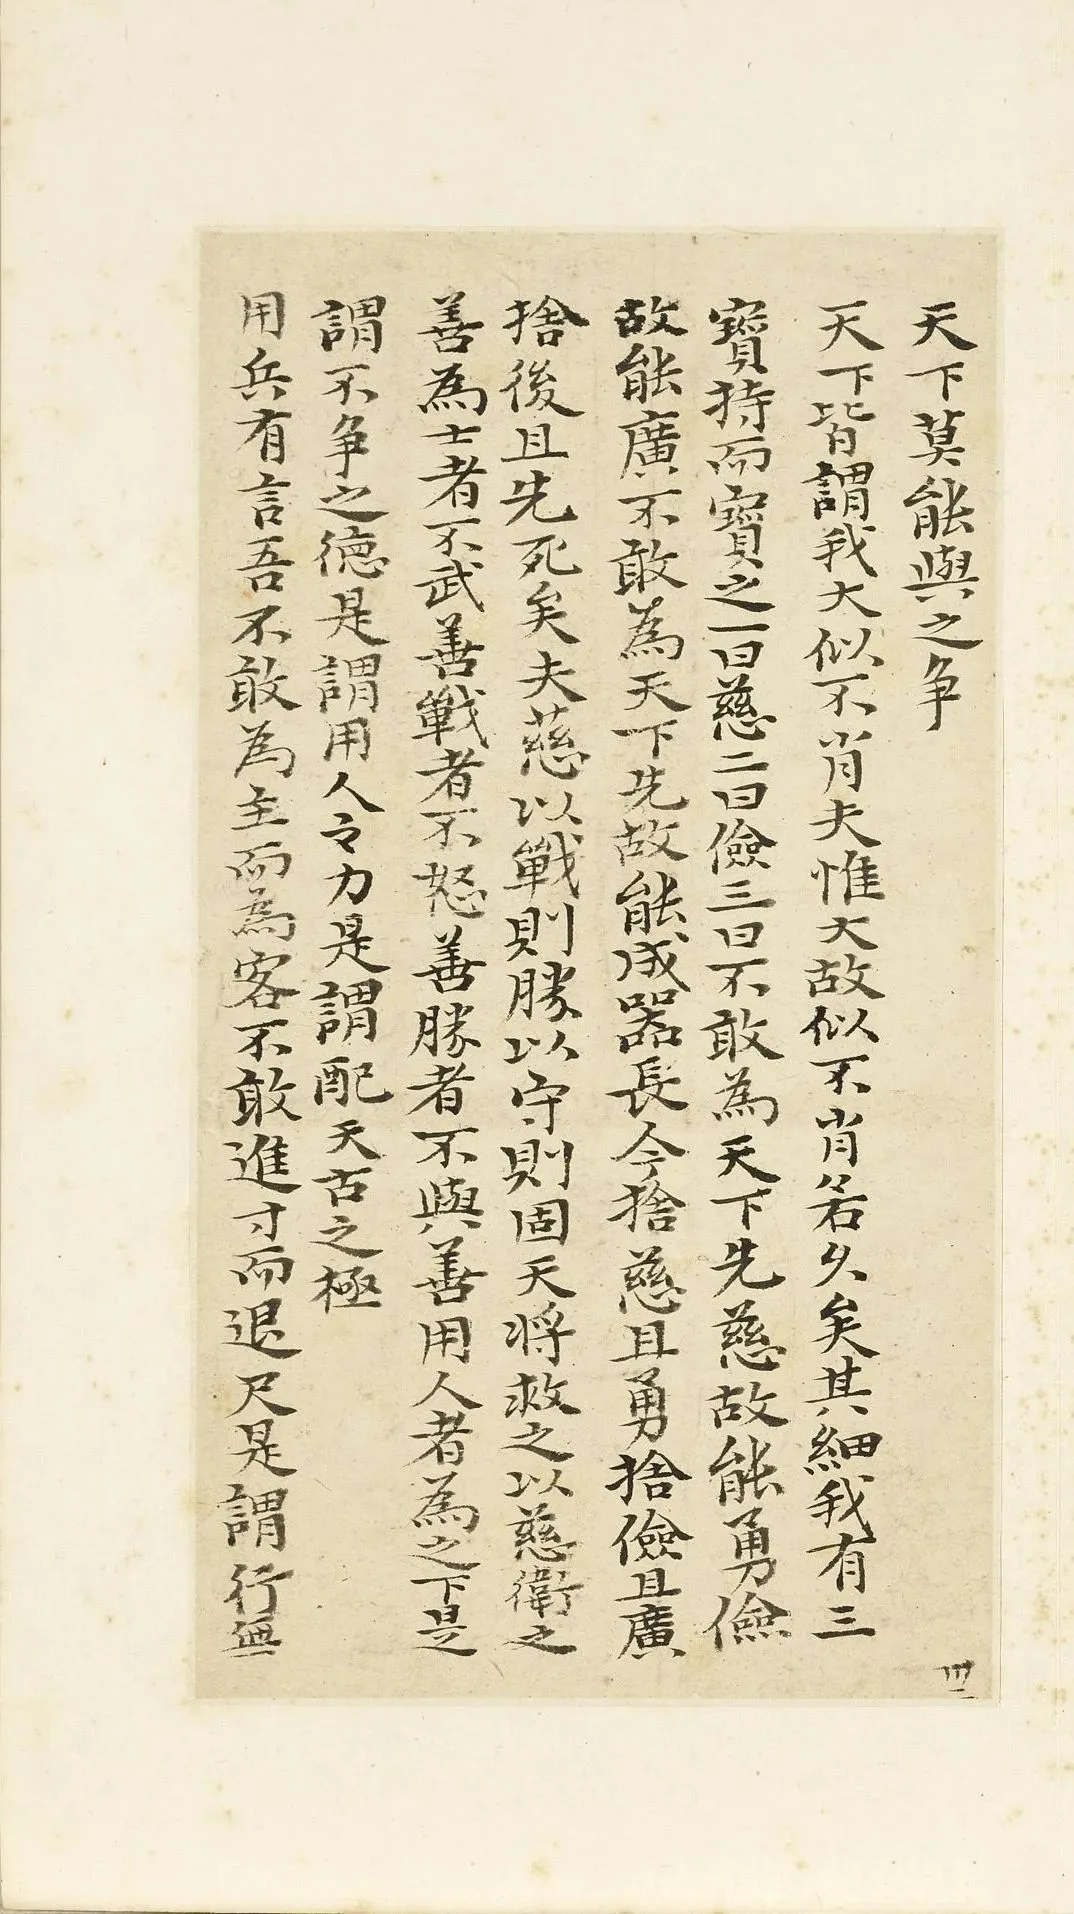 天下莫能與之争
天下皆謂我大似不肖夫惟大故似不肖若久矣其細我有三
寶持而寶之一曰慈二曰儉三曰不敢為天下先慈故能勇儉
故能廣不敢為天下先故能成器長今捨慈且勇捨儉且廣
捨後且先死矣夫慈以戰則勝以守則固天將救之以慈衛之
善為士者不武善戰者不怒善勝者不與善用人者為之下是
謂不争之德是謂用人之力是謂配天古之極
用兵有言吾不敢為主而為客不敢進寸而退尺是謂行無